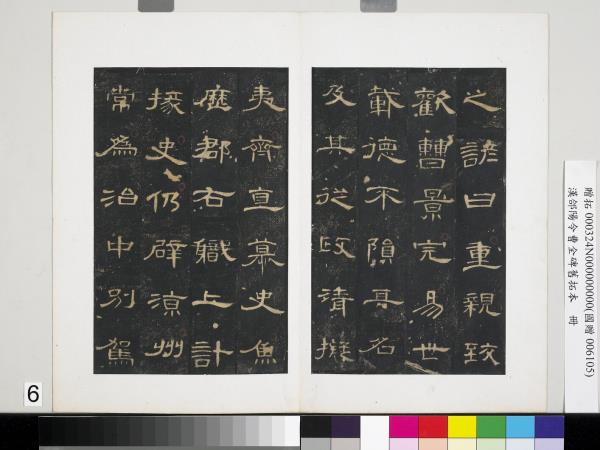 之諺曰重親致
歡曹景完易世
載德不隕其名
及其從政清擬
夷齊直慕史魚
歷郡右職上計
掾史仍辟涼州
常為治中別駕
贈拓 000324N000000000(國贈 006105)
漢郃陽令曹全碑舊拓本 冊
6